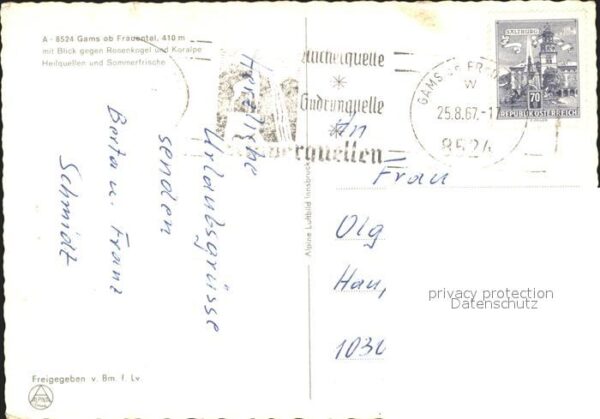 A - 8524 Gams ob Frauental, 410 m
mit Blick gegen Rosenkogel und Koralpe
Heilquellen und Sommerfrische
Herzliche
Urlaubsgrüsse
senden
Berta u. Franz
Schmidt
Freigegeben v. Bm. f. Lv
ALPINA
Alpine Luftbild Innsbruck
Gudrunquelle
GAMS OB FR
W
25.8.67.-1
8524
SALZBURG
70
REPUBLIK ÖSTERREICH
An
Frau
Olg
Hau,
1030
privacy protection
Datenschutz